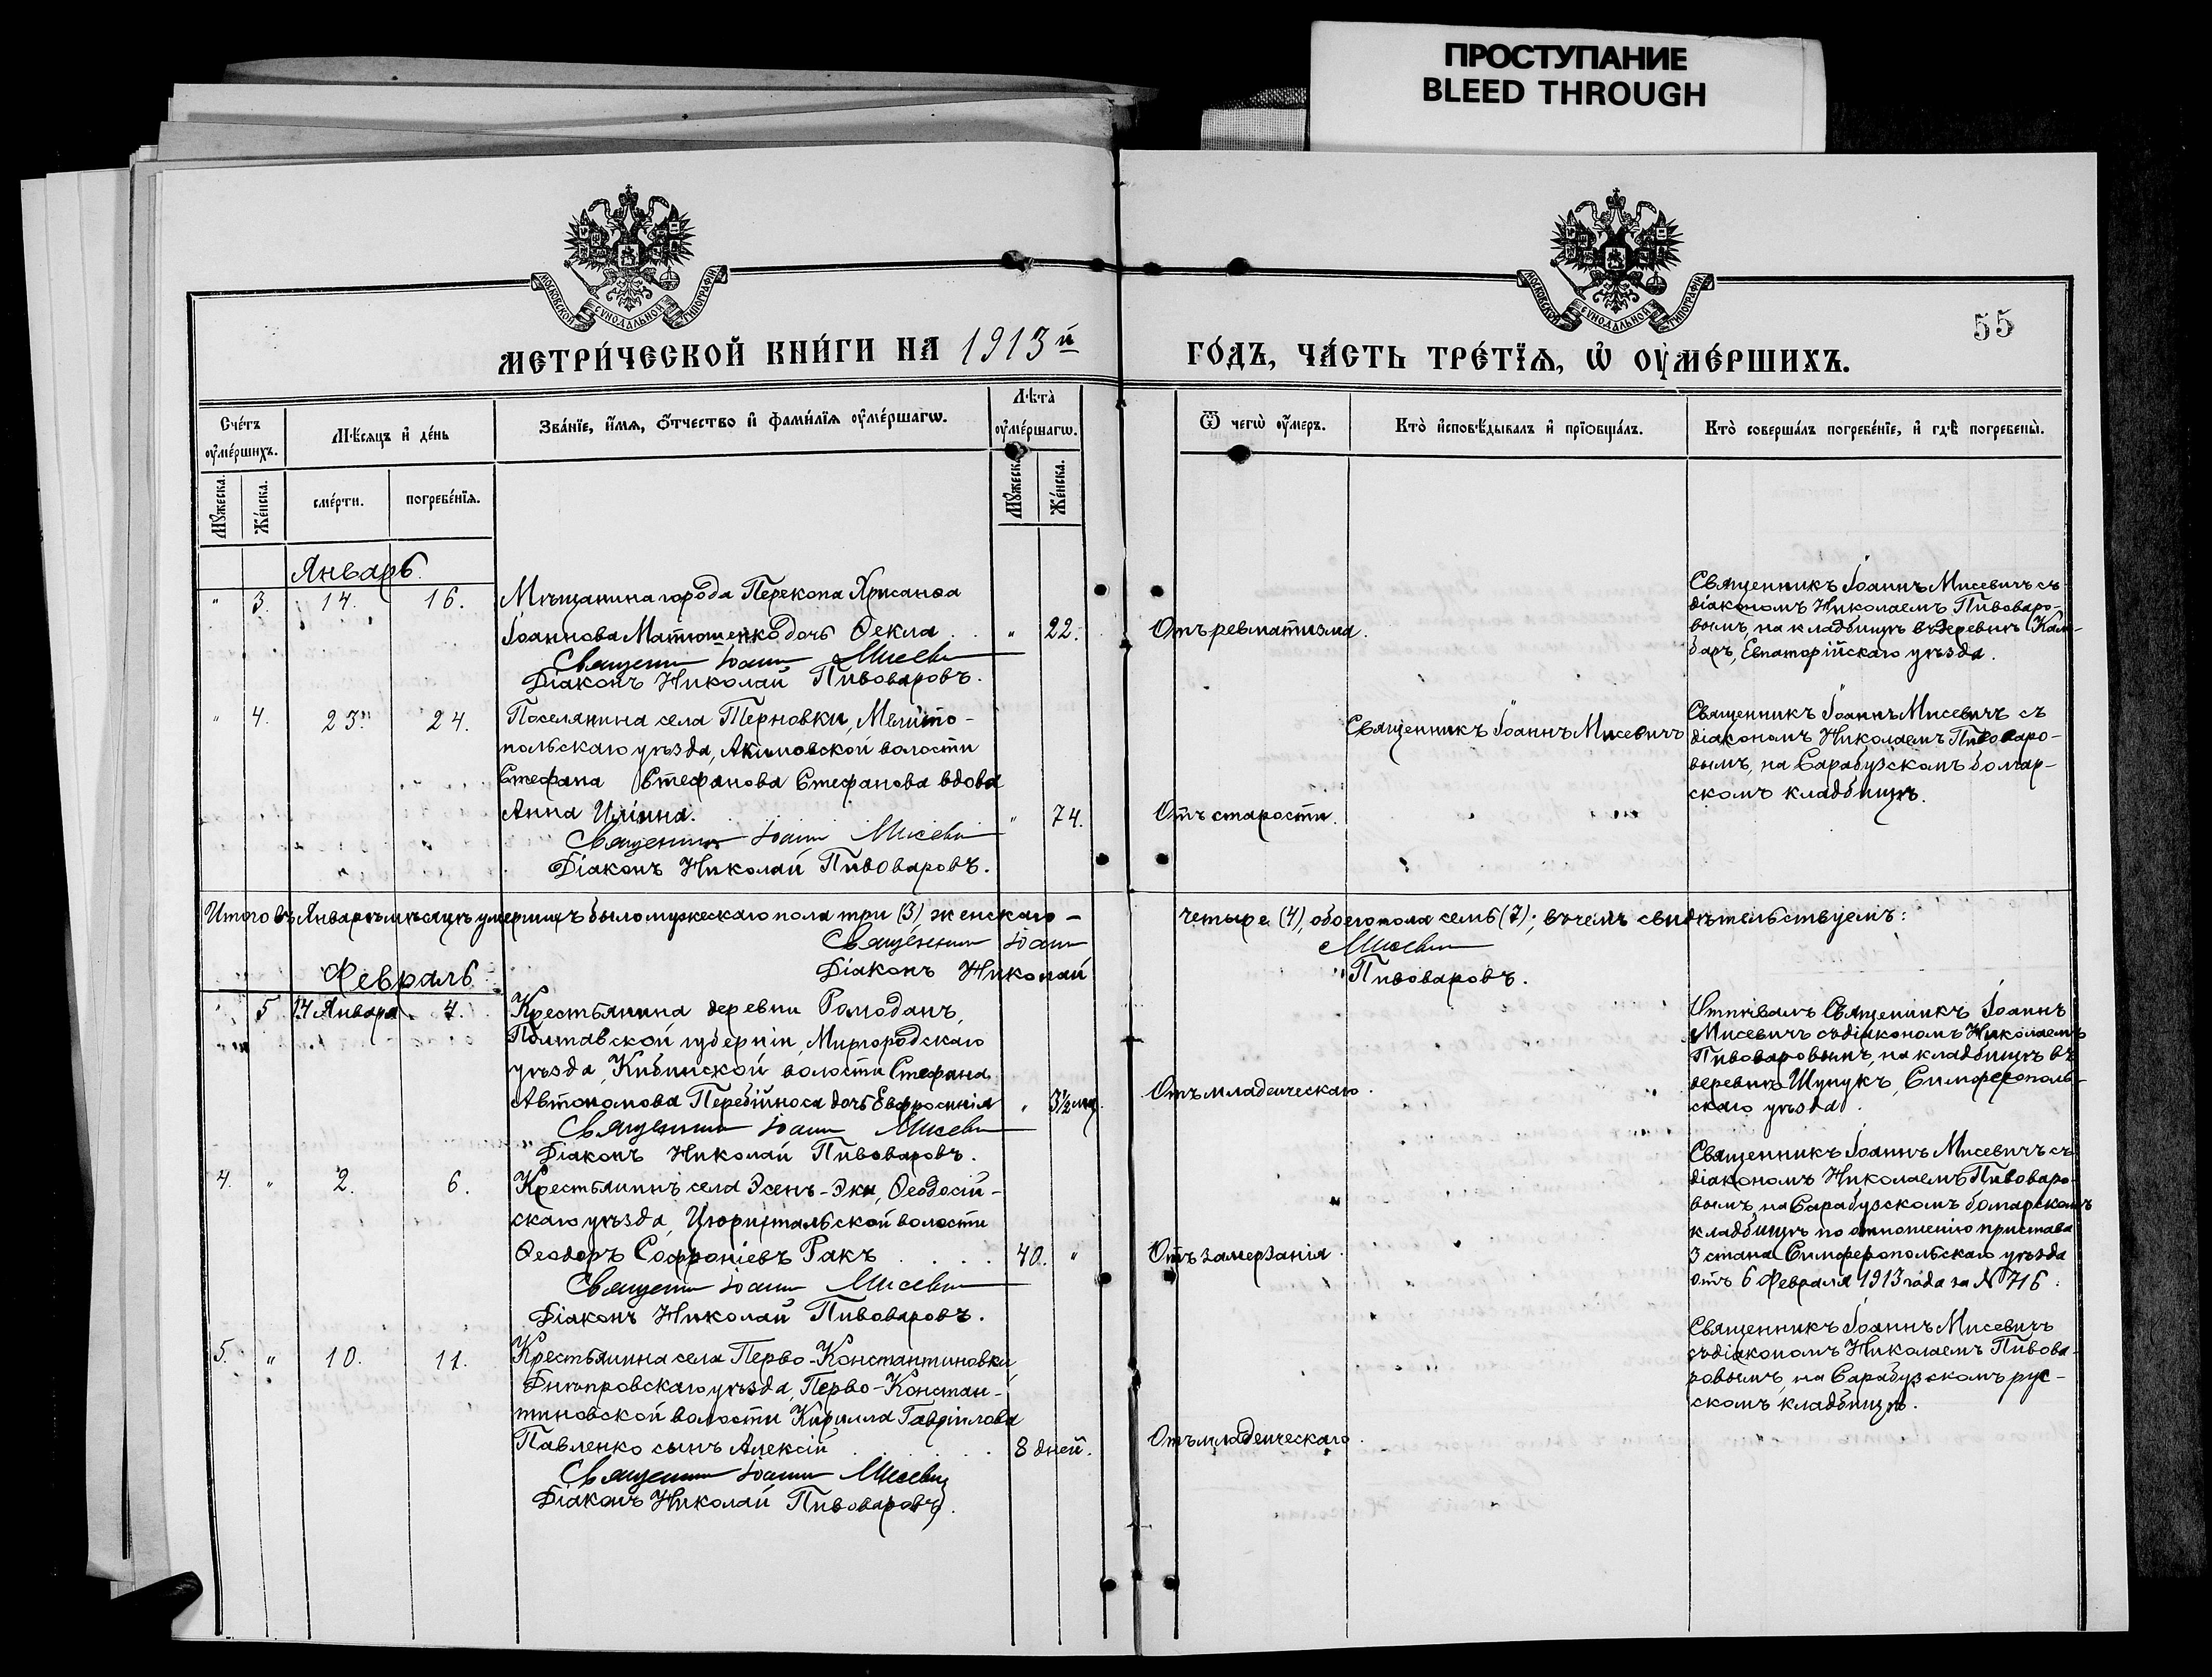 ПРОСТУПАНИЕ
BLEED THROUGH
МОСКОВСКОЙ СѴНОДАЛЬНОЙ ТИПОГРАФІИ
МОСКОВСКОЙ СѴНОДАЛЬНОЙ ТИПОГРАФІИ
55
МЕТРИ́ЧЕСКОЙ КНИ́ГИ НА 1913й
ГО́ДЪ, ЧА́СТЬ ТРЕ́ТЇѦ, Ѡ҆ ОУ҆МЕ́РШИХЪ.
Сче́тъ оу҆ме́ршихъ.
Мѣ́сяцъ и҆ де́нь
Зва́нїе, и҆́мѧ, ѻ҆́тчество и҆ фами́лїѧ оу҆ме́ршагѡ.
Лѣ́та̀ оу҆ме́ршагѡ.
Ѿ чегѡ̀ оу҆́меръ.
Кто̀ и҆сповѣ́дывалъ и҆ прїѡбща́лъ.
Кто̀ соверша́лъ погребе́нїе, и҆ гдѣ̀ погребены̀.
Мꙋ́жеска.
Же́нска.
сме́рти.
погребе́нїѧ.
Мꙋ́жеска.
Же́нска.
Январь.
" 3. 14. 16. Мѣщанина города Перекопа Хрисанѳа
Іоаннова Матюшенко дочь Ѳекла . . " 22. Отъ ревматизма.
Священник Іоанн Мисевич
Діаконъ Николай Пивоваровъ.
Священникъ Іоаннъ Мисевичъ съ
діакономъ Николаемъ Пивоваро-
вымъ, на кладбищѣ въ деревнѣ Кам-
баръ, Евпаторійскаго уѣзда.
" 4. 23. 24. Поселянина села Терновки, Мелито-
польскаго уѣзда, Акимовской волости
Стефана Стефанова Стефанова вдова
Анна Илiина. " 74. Отъ старости.
Священник Іоанн Мисевич
Діаконъ Николай Пивоваровъ.
Священникъ Іоаннъ Мисевичъ
Священникъ Іоаннъ Мисевичъ съ
діакономъ Николаемъ Пивоваро-
вымъ, на Сарабузскомъ болгар-
скомъ кладбищѣ.
Итого въ Январѣ мѣсяцѣ умершихъ было мужескаго пола три (3) женскаго –
четыре (4), обоего пола семь (7); въ чемъ свидѣтельствуемъ:
Священник Іоанн Мисевич
Діаконъ Николай Пивоваровъ.
Февраль
" 5 14 Января 4. Крестьянина деревни Ромоданъ,
Полтавской губерніи, Миргородскаго
уѣзда, Кибинской волости Стефана
Автономова Перебійноса дочь Евфросинія " 3½ мц. Отъ младенческаго.
Священник Іоанн Мисевич
Діаконъ Николай Пивоваровъ.
Отпѣвалъ Священникъ Іоаннъ
Мисевичъ съ діакономъ Николаемъ
Пивоваровымъ, на кладбищѣ въ
деревнѣ Шунукъ, Симферополь-
скаго уѣзда.
4. " 2. 6. Крестьянинъ села Эсенъ-Эки, Ѳеодосій-
скаго уѣзда, Цюрихтальской волости
Ѳеодоръ Софроніевъ Ракъ . . . . 40. " Отъ замерзанія.
Священник Іоанн Мисевич
Діаконъ Николай Пивоваровъ.
Священникъ Іоаннъ Мисевичъ съ
діакономъ Николаемъ Пивоваро-
вымъ, на Сарабузскомъ болгарскомъ
кладбищѣ по отношенію пристава
3 стана Симферопольскаго уѣзда
отъ 6 Февраля 1913 года за № 716.
5. " 10. 11. Крестьянина села Перво-Константиновки,
Днѣпровскаго уѣзда, Перво-Констан-
тиновской волости Кирилла Гавріилова
Павленко сынъ Алексій . . . . 8 дней. Отъ младенческаго.
Священник Іоанн Мисевич
Діаконъ Николай Пивоваровъ.
Священникъ Іоаннъ Мисевичъ
съ діакономъ Николаемъ Пивова-
ровымъ, на Сарабузскомъ рус-
скомъ кладбищѣ.